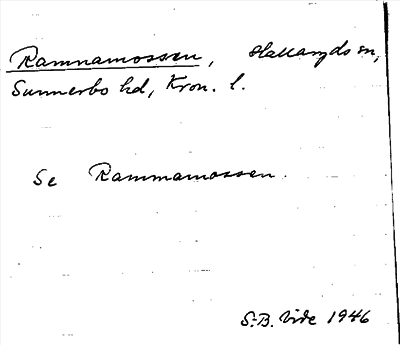 Ramnamossen, Hallaryds sn,
Sunnerbo hd, Kron. l.
Se Rammamossen.
S.-B. Vide 1946